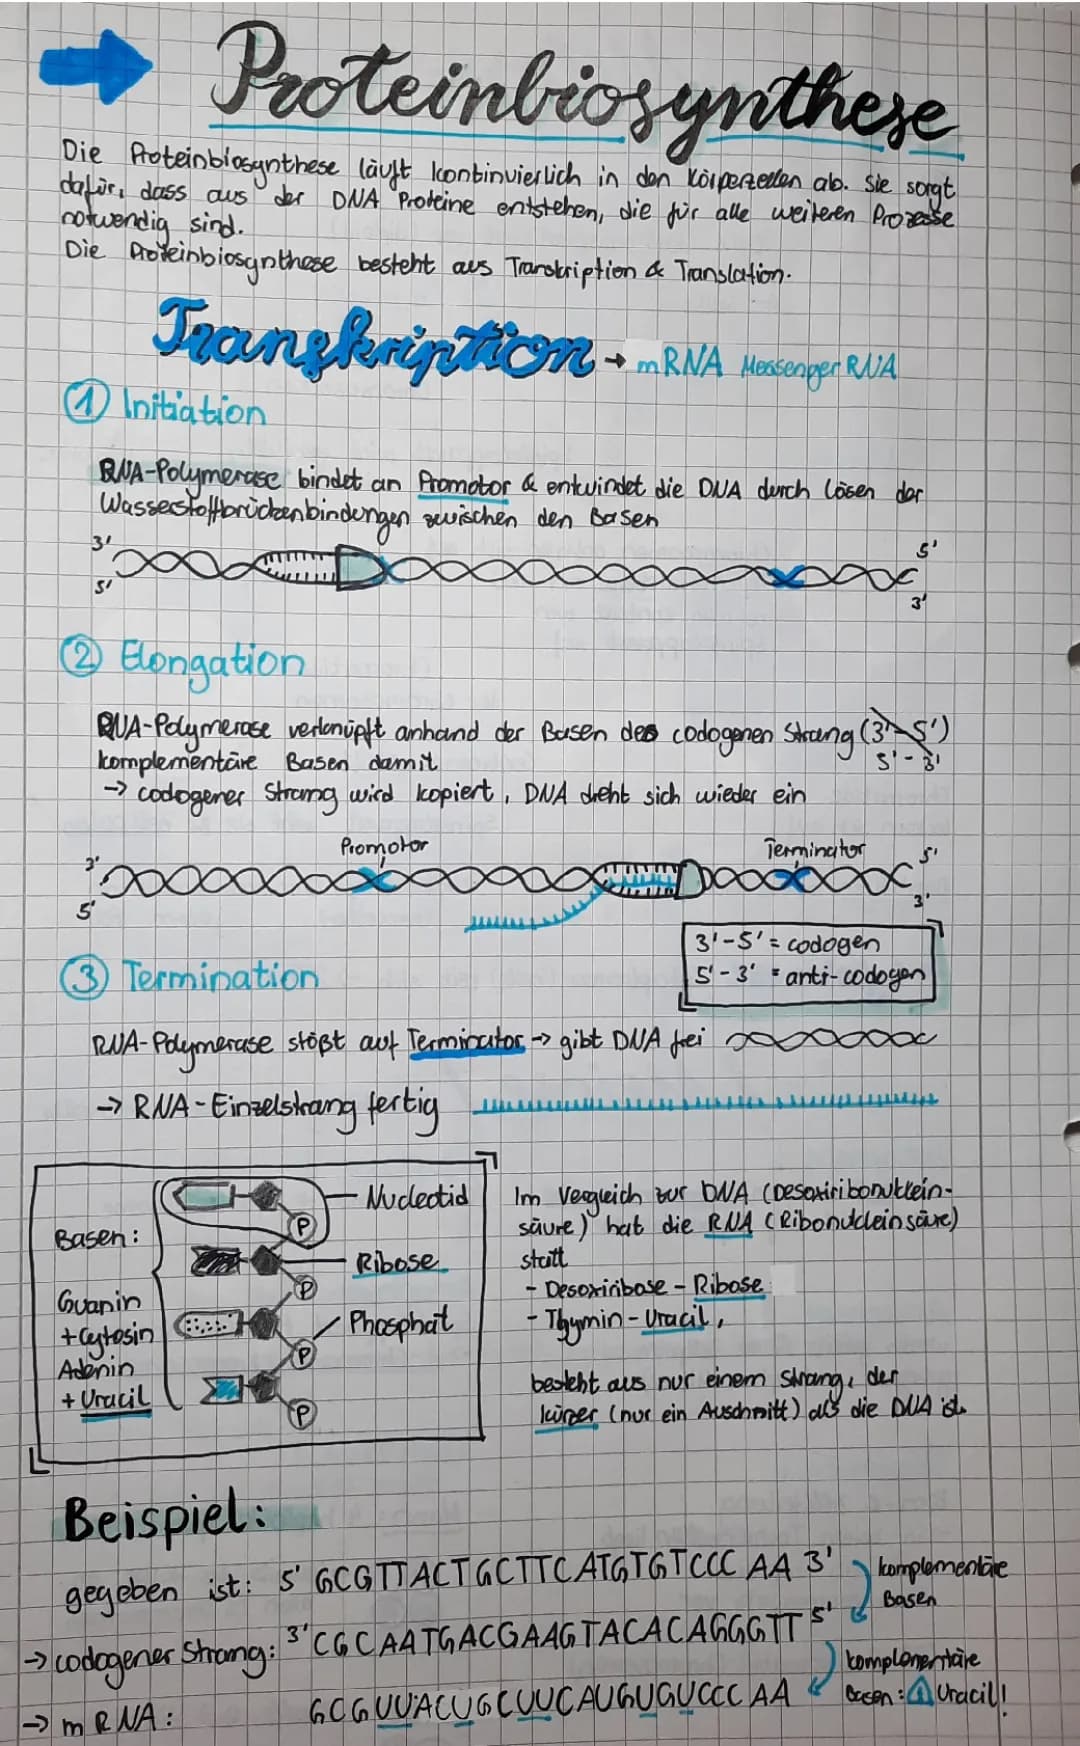 Proteinbiosynthese
Die Proteinbiosynthese läuft kontinuierlich in den Körperzellen ab. Sie sorgt
dafür, dass aus der DNA Proteine entstehen, die für alle weiteren Prozesse
notwendig sind.
Die Proteinbiosynthese besteht aus Transkription & Translation.
Transkription → mRNA Messenger RNA
① Initiation
RNA-Polymerase bindet an Promotor & entwindet die DNA durch lösen der
Wasserstoffbrückenbindungen zwischen den Basen
3' 5'
5' 3'
② Elongation
RNA-Polymerase verknüpft anhand der Basen des codogenen Strang (3'-5')
komplementäre Basen damit 5'-3'
→ codogener Strang wird kopiert, DNA dreht sich wieder ein
Promotor Terminator
3' 5'
5' 3'
3'-5' = codogen
5'-3' = anti-codogen
③ Termination
RNA-Polymerase stößt auf Terminator → gibt DNA frei
→ RNA-Einzelstrang fertig
Basen:
Guanin
+Cytosin
Adenin
+Uracil
Nucleotid
Ribose
Phosphat
P
P
P
P
Im Vergleich zur DNA (Desoxiribonuklein-
säure) hat die RNA (Ribonukleinsäure)
statt
- Desoxiribose - Ribose
- Thymin - Uracil,
besteht aus nur einem Strang, der
kürzer (nur ein Auschnitt) als die DNA ist.
Beispiel:
gegeben ist: 5' GCGTTACTGCTTCATGTGTCCCAA 3' komplementäre
Basen
→ codogener Strang: 3' CGCAATGACGAAGTACACAGGGTT 5'
komplementäre
Basen: ⚠ Uracil!
→ mRNA: GCGUUACUGCUUCAUGUGUCCCAA